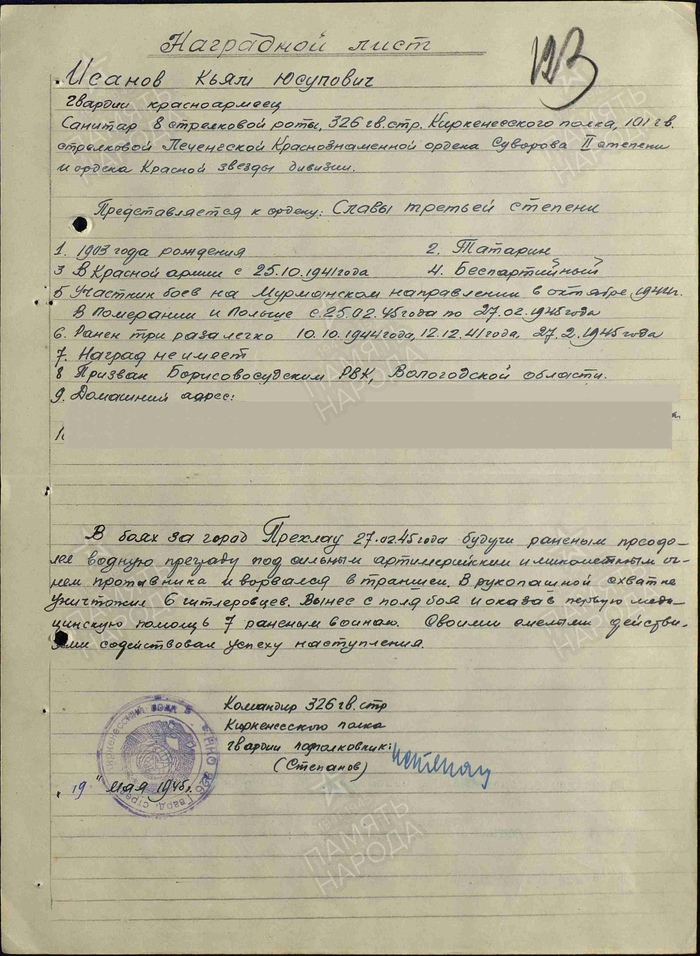 Наградной лист
123
Исанов Кьям Юсупович
гвардии красноармеец
Санитар 8 стрелковой роты, 326 гв. стр. Киркенесского полка, 101 гв.
стрелковой Печенгской Краснознаменной ордена Суворова II степени
и ордена Красной звезды дивизии.
Представляется к ордену: Славы третьей степени
1. 1903 года рождения 2. Татарин
3 В Красной армии с 25.10.1941 года 4. Беспартийный
5 Участник боев на Мурманском направлении в октябре 1944г.
В Померании и Польше с 25.02.45 года по 27.02.1945 года
6. Ранен три раза легко 10.10.1944 года, 12.12.41 года, 27.2.1945 года
7. Наград не имеет
8 Призван Борисовосудским РВК, Вологодской области.
9. Домашний адрес:
В боях за город Прехлау 27.02.45 года будучи раненым преодо-
лев водную преграду под сильным артиллерийским и минометным ог-
нем противника и ворвался в траншеи. В рукопашной схватке
уничтожил 6 гитлеровцев. Вынес с поля боя и оказав первую меди-
цинскую помощь 7 раненым воинам. Своими смелыми действи-
ями содействовал успеху наступления.
Командир 326 гв. стр
Киркенесского полка
гвардии подполковник:
(Степанов)
"19" мая 1945г.
ПАМЯТЬ
НАРОДА